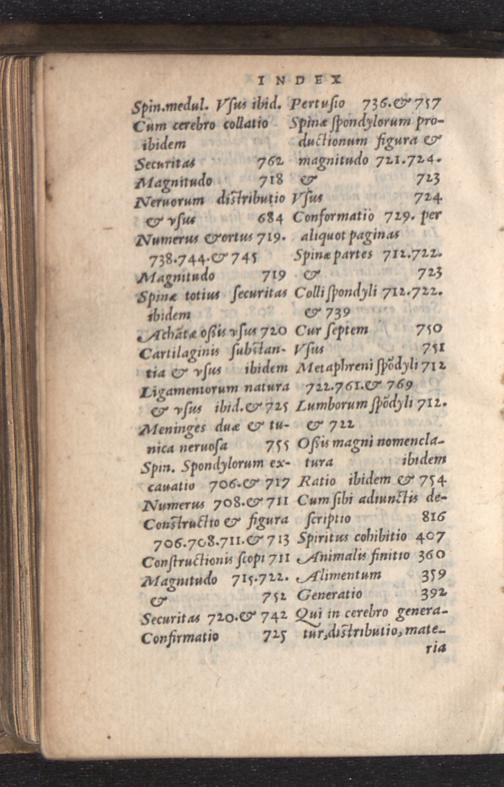 INDEX
Spin.medul. Vſus ibid.
Cum cerebro collatio
ibidem
Securitas 762
Magnitudo 718
Neruorum diſtributio
& vſus 684
Numerus & ortus 719.
738.744.& 745
Magnitudo 719
Spinæ totius ſecuritas
ibidem
Achātæ oßis vſus 720
Cartilaginis ſubſtan-
tia & vſus ibidem
Ligamentorum natura
& vſus ibid.& 725
Meninges duæ & tu-
nica neruoſa 755
Spin. Spondylorum ex-
cauatio 706.& 717
Numerus 708.& 711
Conſtructio & figura
706.708.711.& 713
Conſtructionis ſcopi 711
Magnitudo 715.722.
& 752
Securitas 720.& 742
Confirmatio 725
Pertuſio 736.& 757
Spinæ ſpondylorum pro-
ductionum figura &
magnitudo 721.724.
& 723
Vſus 724
Conformatio 729. per
aliquot paginas
Spinæ partes 712.722.
& 723
Colli ſpondyli 712.722.
& 739
Cur ſeptem 750
Vſus 751
Metaphreni ſpōdyli 712
722.761.& 769
Lumborum ſpōdyli 712.
& 722
Oßis magni nomencla-
tura ibidem
Ratio ibidem & 754
Cum ſibi adiunctis de-
ſcriptio 816
Spiritus cohibitio 407
Animalis finitio 360
Alimentum 359
Generatio 392
Qui in cerebro genera-
tur,diſtributio, mate-
ria